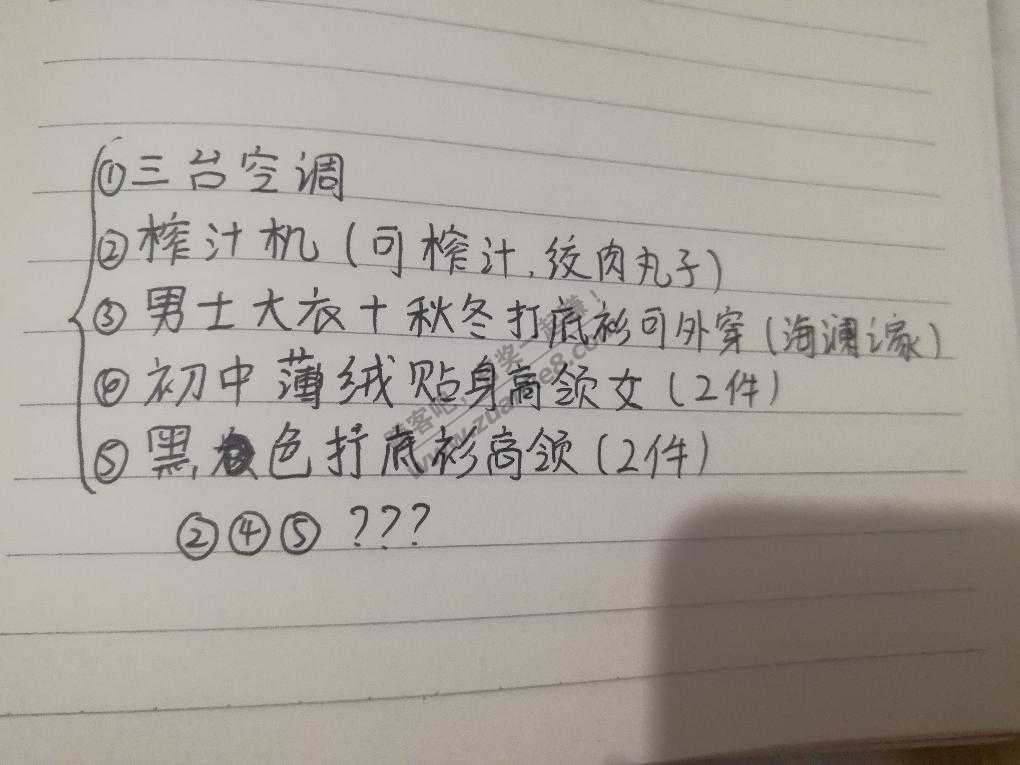 ①三台空调
②榨汁机(可榨汁,绞肉丸子)
③男士大衣+秋冬打底衫可外穿(海澜之家)
④初中薄绒贴身高领女(2件)
⑤黑色打底衫高领(2件)
②④⑤???
www.zuanke8.com